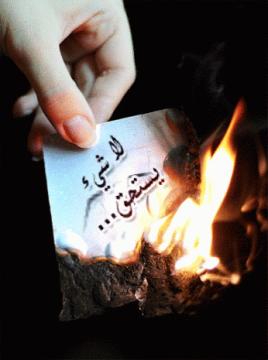 لا شيء
يستحق...